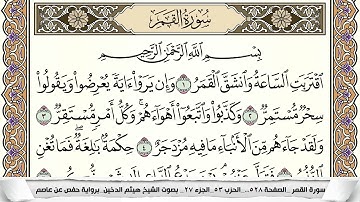 سُورَةُ القَمَرِ
بِسْمِ اللَّهِ الرَّحْمَٰنِ الرَّحِيمِ
اقْتَرَبَتِ السَّاعَةُ وَانشَقَّ الْقَمَرُ ١ وَإِن يَرَوْا آيَةً يُعْرِضُوا وَيَقُولُوا
سِحْرٌ مُّسْتَمِرٌّ ٢ وَكَذَّبُوا وَاتَّبَعُوا أَهْوَاءَهُمْ وَكُلُّ أَمْرٍ مُّسْتَقِرٌّ ٣
وَلَقَدْ جَاءَهُم مِّنَ الْأَنبَاءِ مَا فِيهِ مُزْدَجَرٌ ٤ حِكْمَةٌ بَالِغَةٌ فَمَا تُغْنِ
سورة القمر _ الصفحة ٥٢٨ _ الحزب ٥٣ _ الجزء ٢٧ _ بصوت الشيخ هيثم الدخين. برواية حفص عن عاصم